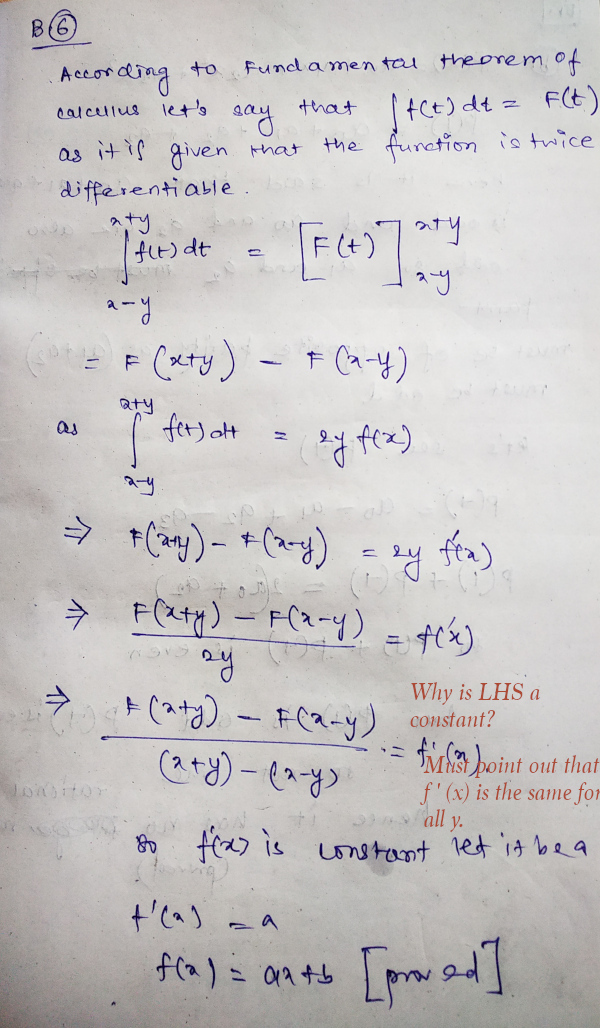 B 6
According to Fundamental theorem of
calculus let's say that ∫ f(t) dt = F(t)
as it is given that the function is twice
differentiable.
∫_{x-y}^{x+y} f(t) dt = [F(t)]_{x-y}^{x+y}
= F(x+y) - F(x-y)
as ∫_{x-y}^{x+y} f(t) dt = 2y f(x)
⇒ F(x+y) - F(x-y) = 2y f'(x)
⇒ (F(x+y) - F(x-y)) / 2y = f'(x)
⇒ (F(x+y) - F(x-y)) / ((x+y) - (x-y)) = f'(x)
Why is LHS a
constant?
Must point out that
f ' (x) is the same for
all y.
so f'(x) is constant let it be a
f'(x) = a
f(x) = ax+b [proved]